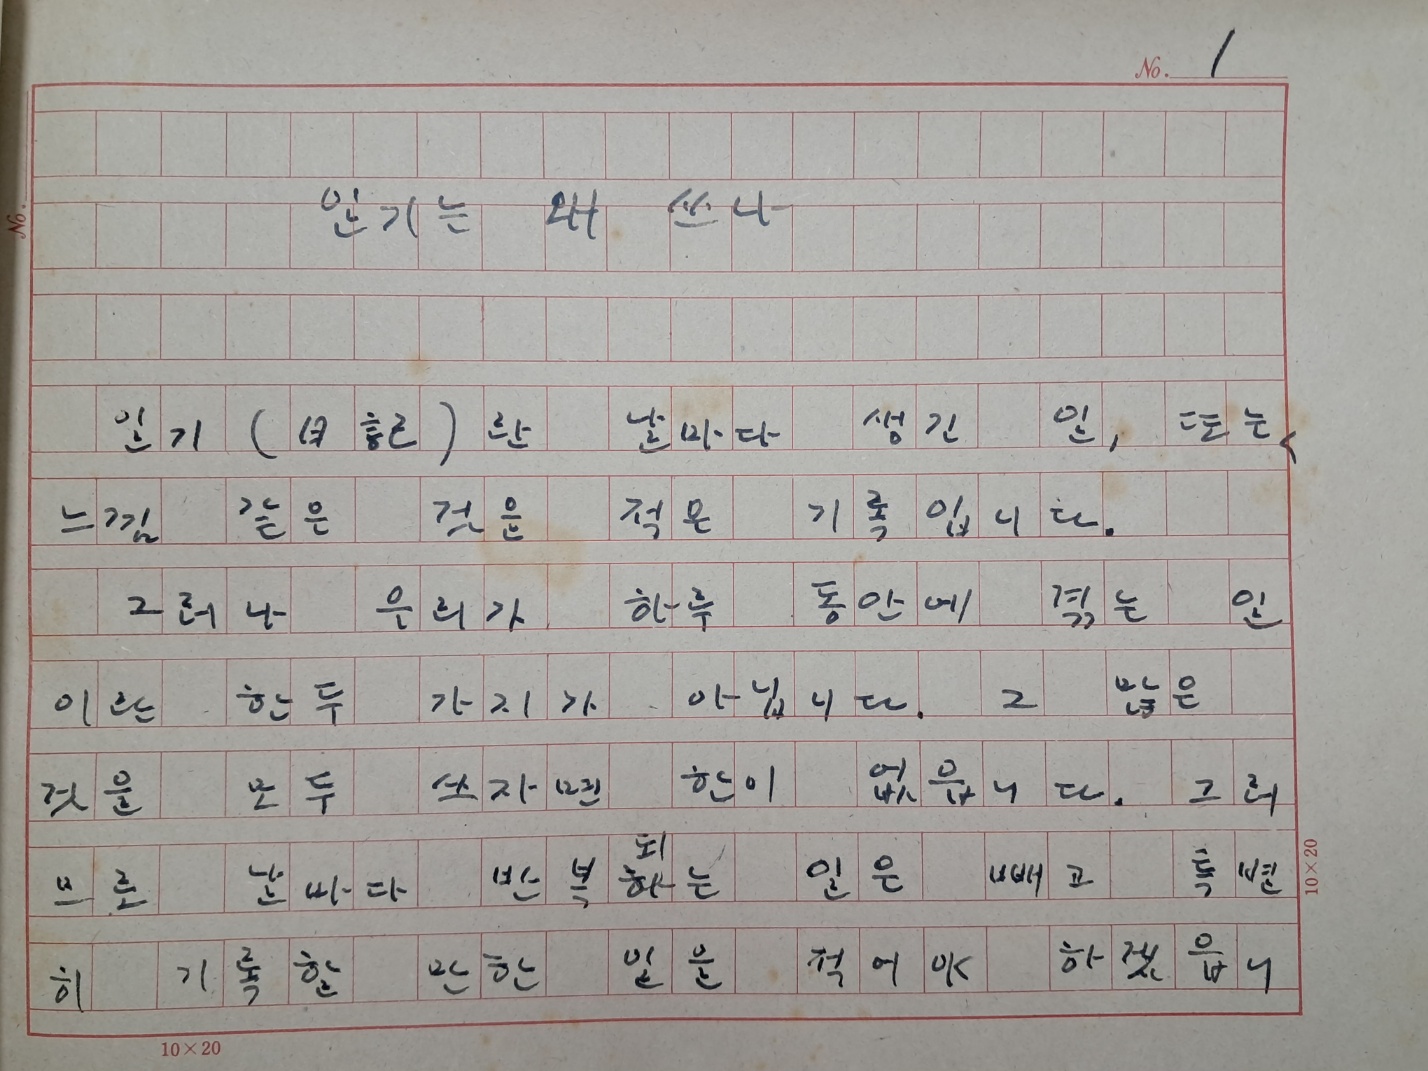 No. 1
No.
일기는 왜 쓰나
일기(日記)란 날마다 생긴 일, 또는
느낌 같은 것을 적은 기록입니다.
그러나 우리가 하루 동안에 겪는 일
이란 한두 가지가 아닙니다. 그 많은
것을 모두 쓰자면 한이 없읍니다. 그러
므로 날마다 반복되하는 일은 빼고 특별
히 기록할 만한 일을 적어야 하겠읍니
10×20
10×20